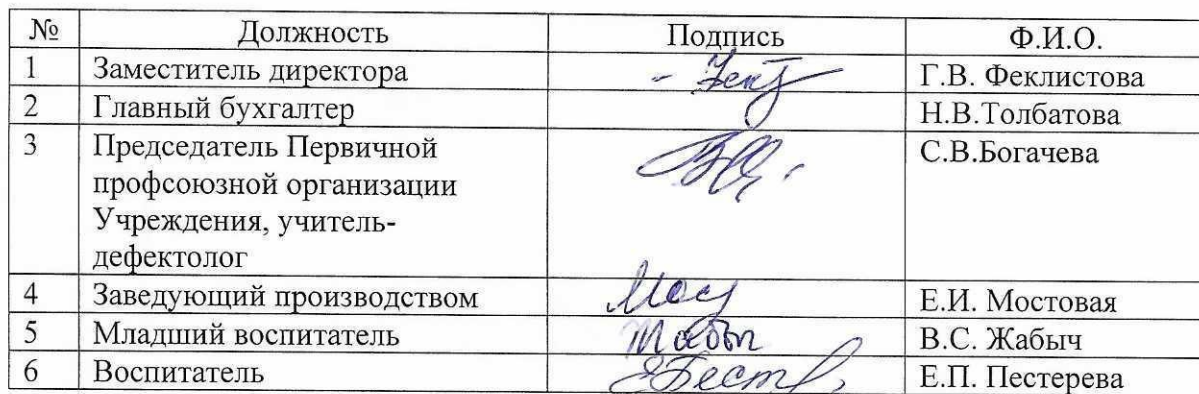 № Должность Подпись Ф.И.О.
1 Заместитель директора Г.В. Феклистова
2 Главный бухгалтер Н.В.Толбатова
3 Председатель Первичной С.В.Богачева
профсоюзной организации
Учреждения, учитель-
дефектолог
4 Заведующий производством Е.И. Мостовая
5 Младший воспитатель В.С. Жабыч
6 Воспитатель Е.П. Пестерева